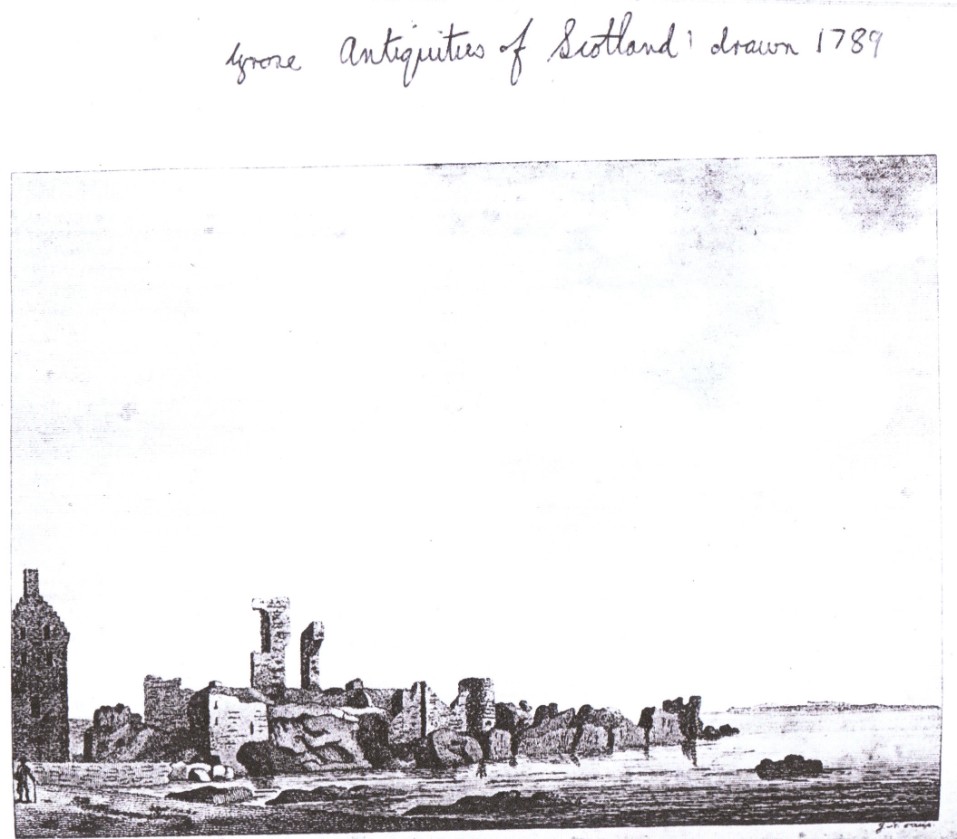 Grose Antiquities of Scotland: drawn 1789